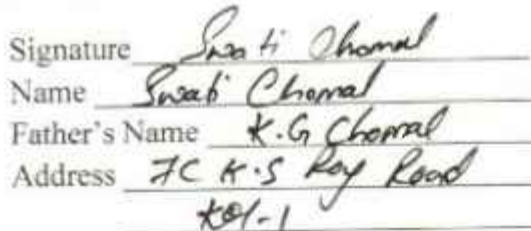 Signature Swati Chomal
Name Swati Chomal
Father's Name K.G Chomal
Address 7C K.S Roy Road
Kol-1